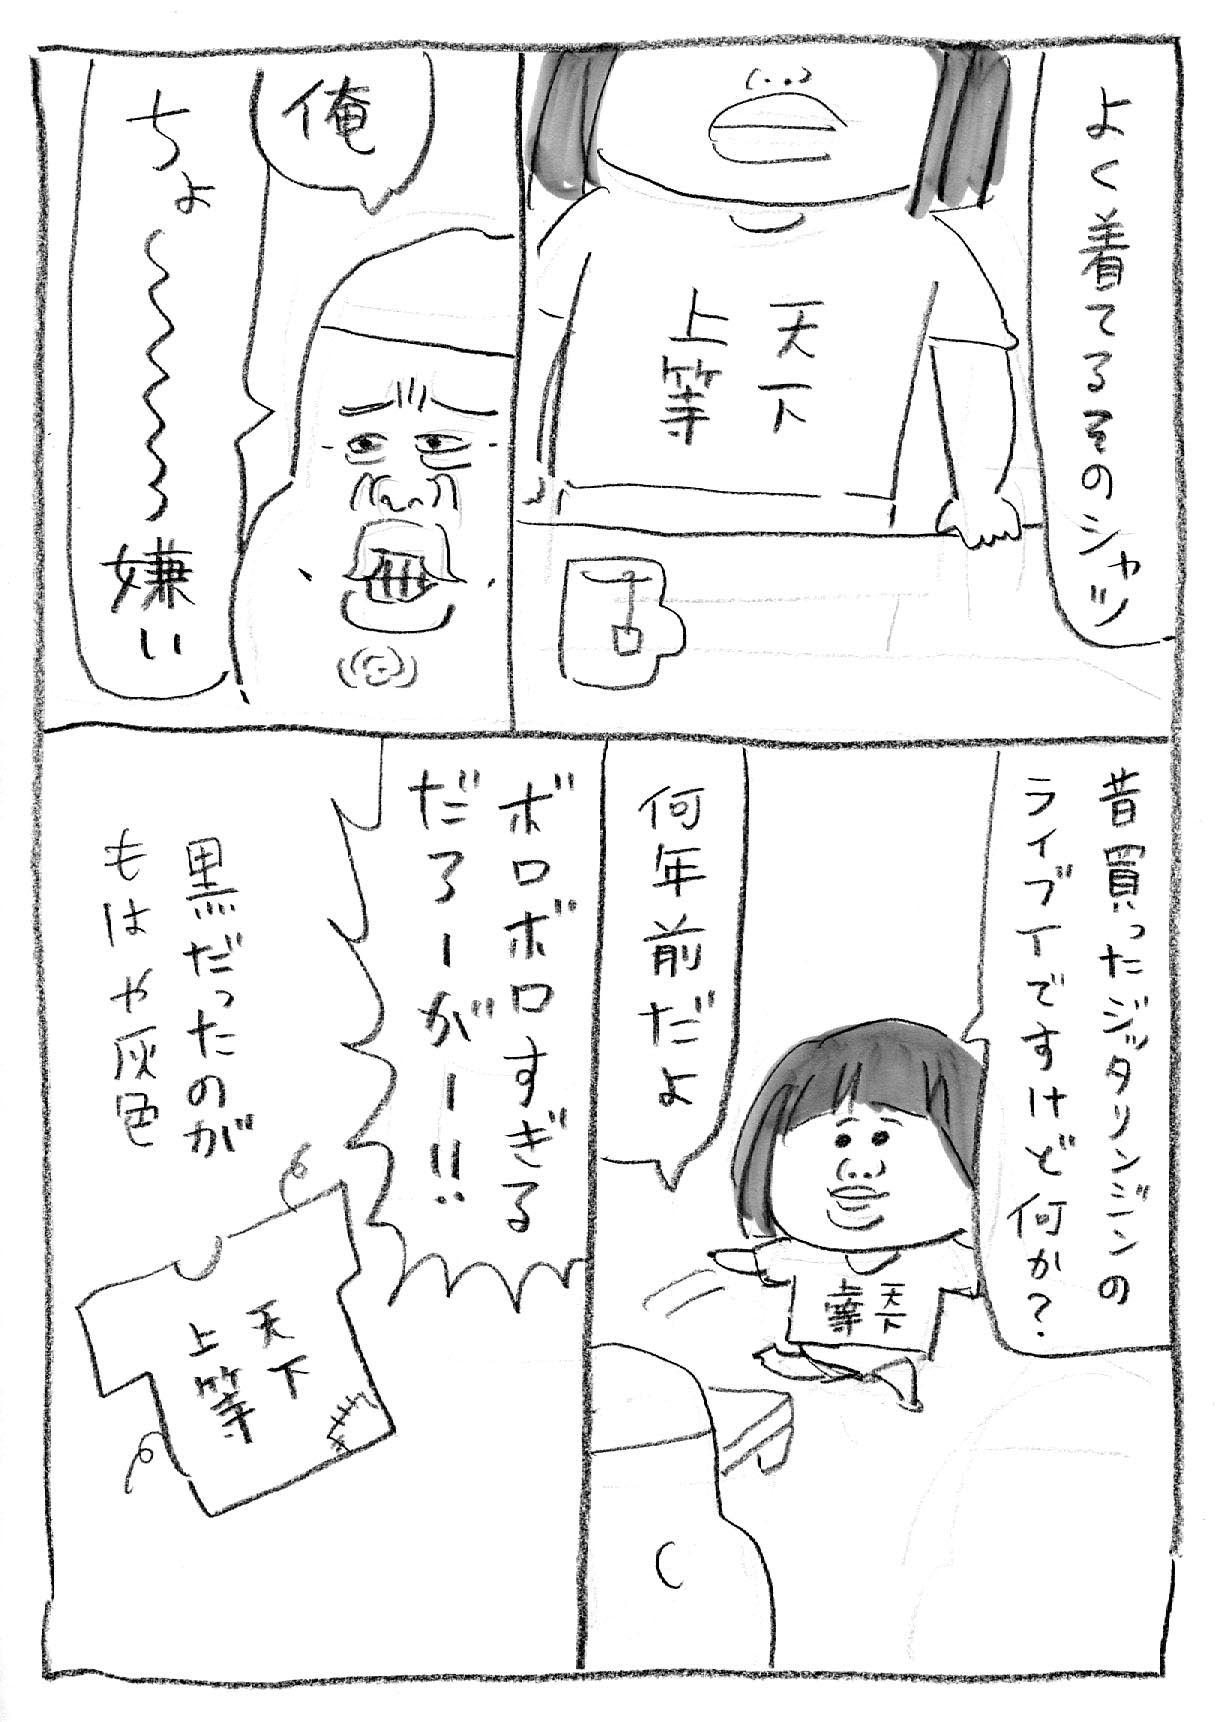 よく着てるそのシャツ
天下
上等
俺
ちょ～～～～～嫌い
昔買ったジッタリンジンの
ライブTですけど何か?
天下
上等
何年前だよ
ボロボロすぎる
だろーがー!!
黒だったのが
もはや灰色
天下
上等